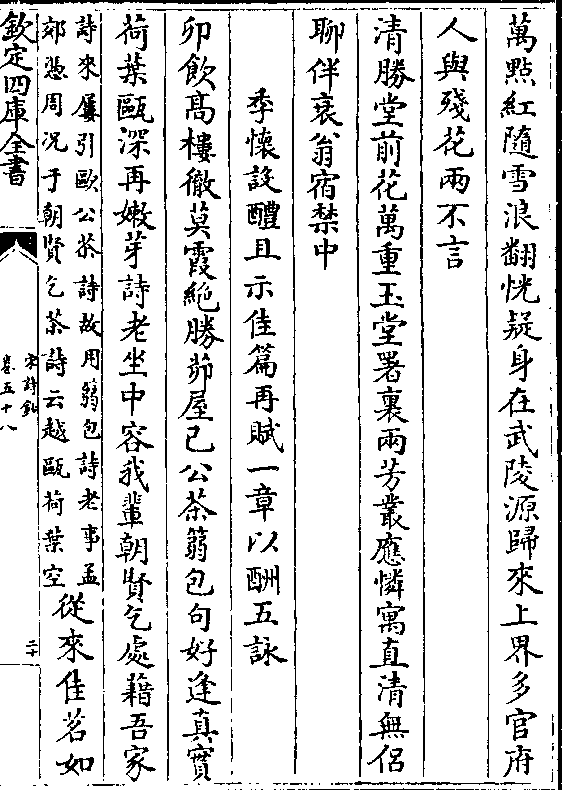 萬點紅隨雪浪翻恍疑身在武陵源歸來上界多官府
人與殘花兩不言
清勝堂前花萬重玉堂署裏兩芳叢應憐寓直清無侶
聊伴衰翁宿禁中
季懷設醴且示佳篇再賦一章以酬五詠
卯飲髙樓徹莫霞絶勝茆屋己公茶篛包句好逢真賞
荷葉甌深再嫩芽詩老坐中容我輩朝賢乞處藉吾家
詩來屢引歐公茶詩故用篛包詩老事孟
郊憑周况于朝賢乞茶詩云越甌荷葉空
從來佳茗如
欽定四庫全書
宋詩鈔
卷五十八
二十